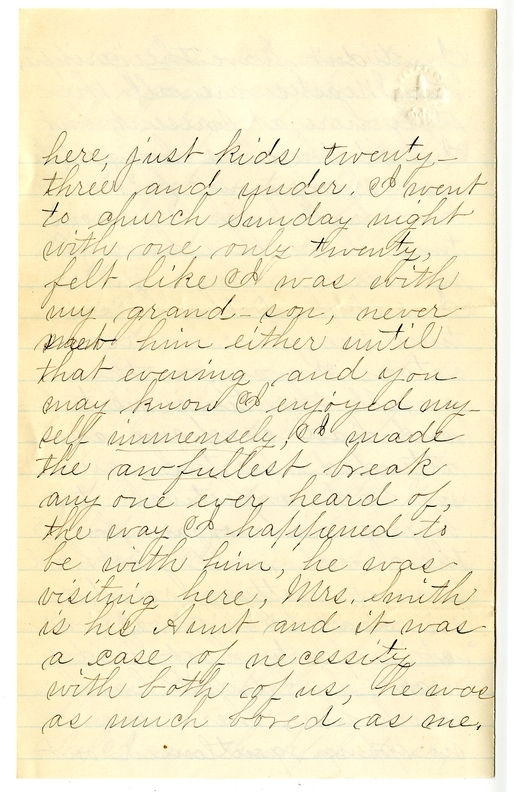 here, just kids twenty-
three and under. I went
to church Sunday night
with one only twenty,
felt like I was with
my grand-son, never
met him either until
that evening and you
may know I enjoyed my-
self immensely, I made
the awfullest break
any one ever heard of,
the way I happened to
be with him, he was
visiting here, Mrs. Smith
is his Aunt and it was
a case of necessity
with both of us, he was
as much bored as me.